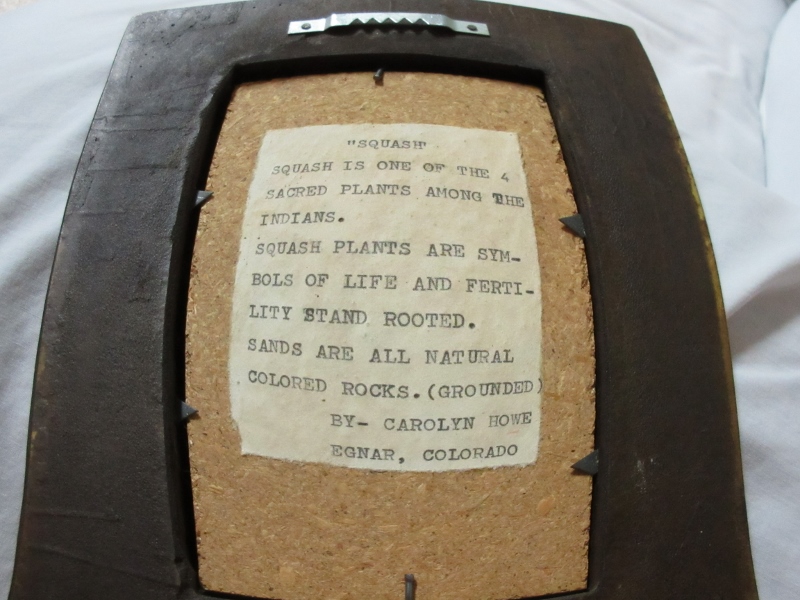 "SQUASH"
SQUASH IS ONE OF THE 4
SACRED PLANTS AMONG THE
INDIANS.
SQUASH PLANTS ARE SYM-
BOLS OF LIFE AND FERTI-
LITY STAND ROOTED.
SANDS ARE ALL NATURAL
COLORED ROCKS.(GROUNDED)
BY- CAROLYN HOWE
EGNAR, COLORADO